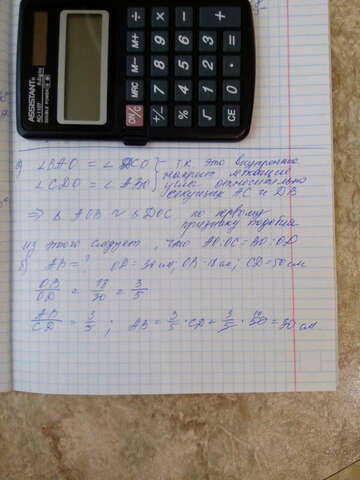 ASSISTANT
AC-1107
8-digits
DOUBLE POWER
ON/C MRC M− M+ ÷
+/− 7 8 9 ×
% 4 5 6 −
√ 1 2 3 +
CE 0 . =
а) ∠BAO = ∠DCO } – т.к. это внутренние
накрест лежащие
∠CDO = ∠ABO, углы относительно
секущих AC и DB
⇒ ∆ AOB ~ ∆ DOC по первому
признаку подобия
из этого следует, что AO:OC=BO:OD
б) AB=? OD=30 см; OB=18 см; CD=50 см
OB/OD = 18/30 = 3/5
AB/CD = 3/5 ; AB = 3/5 · CD = 3/5 · 50 = 30 см